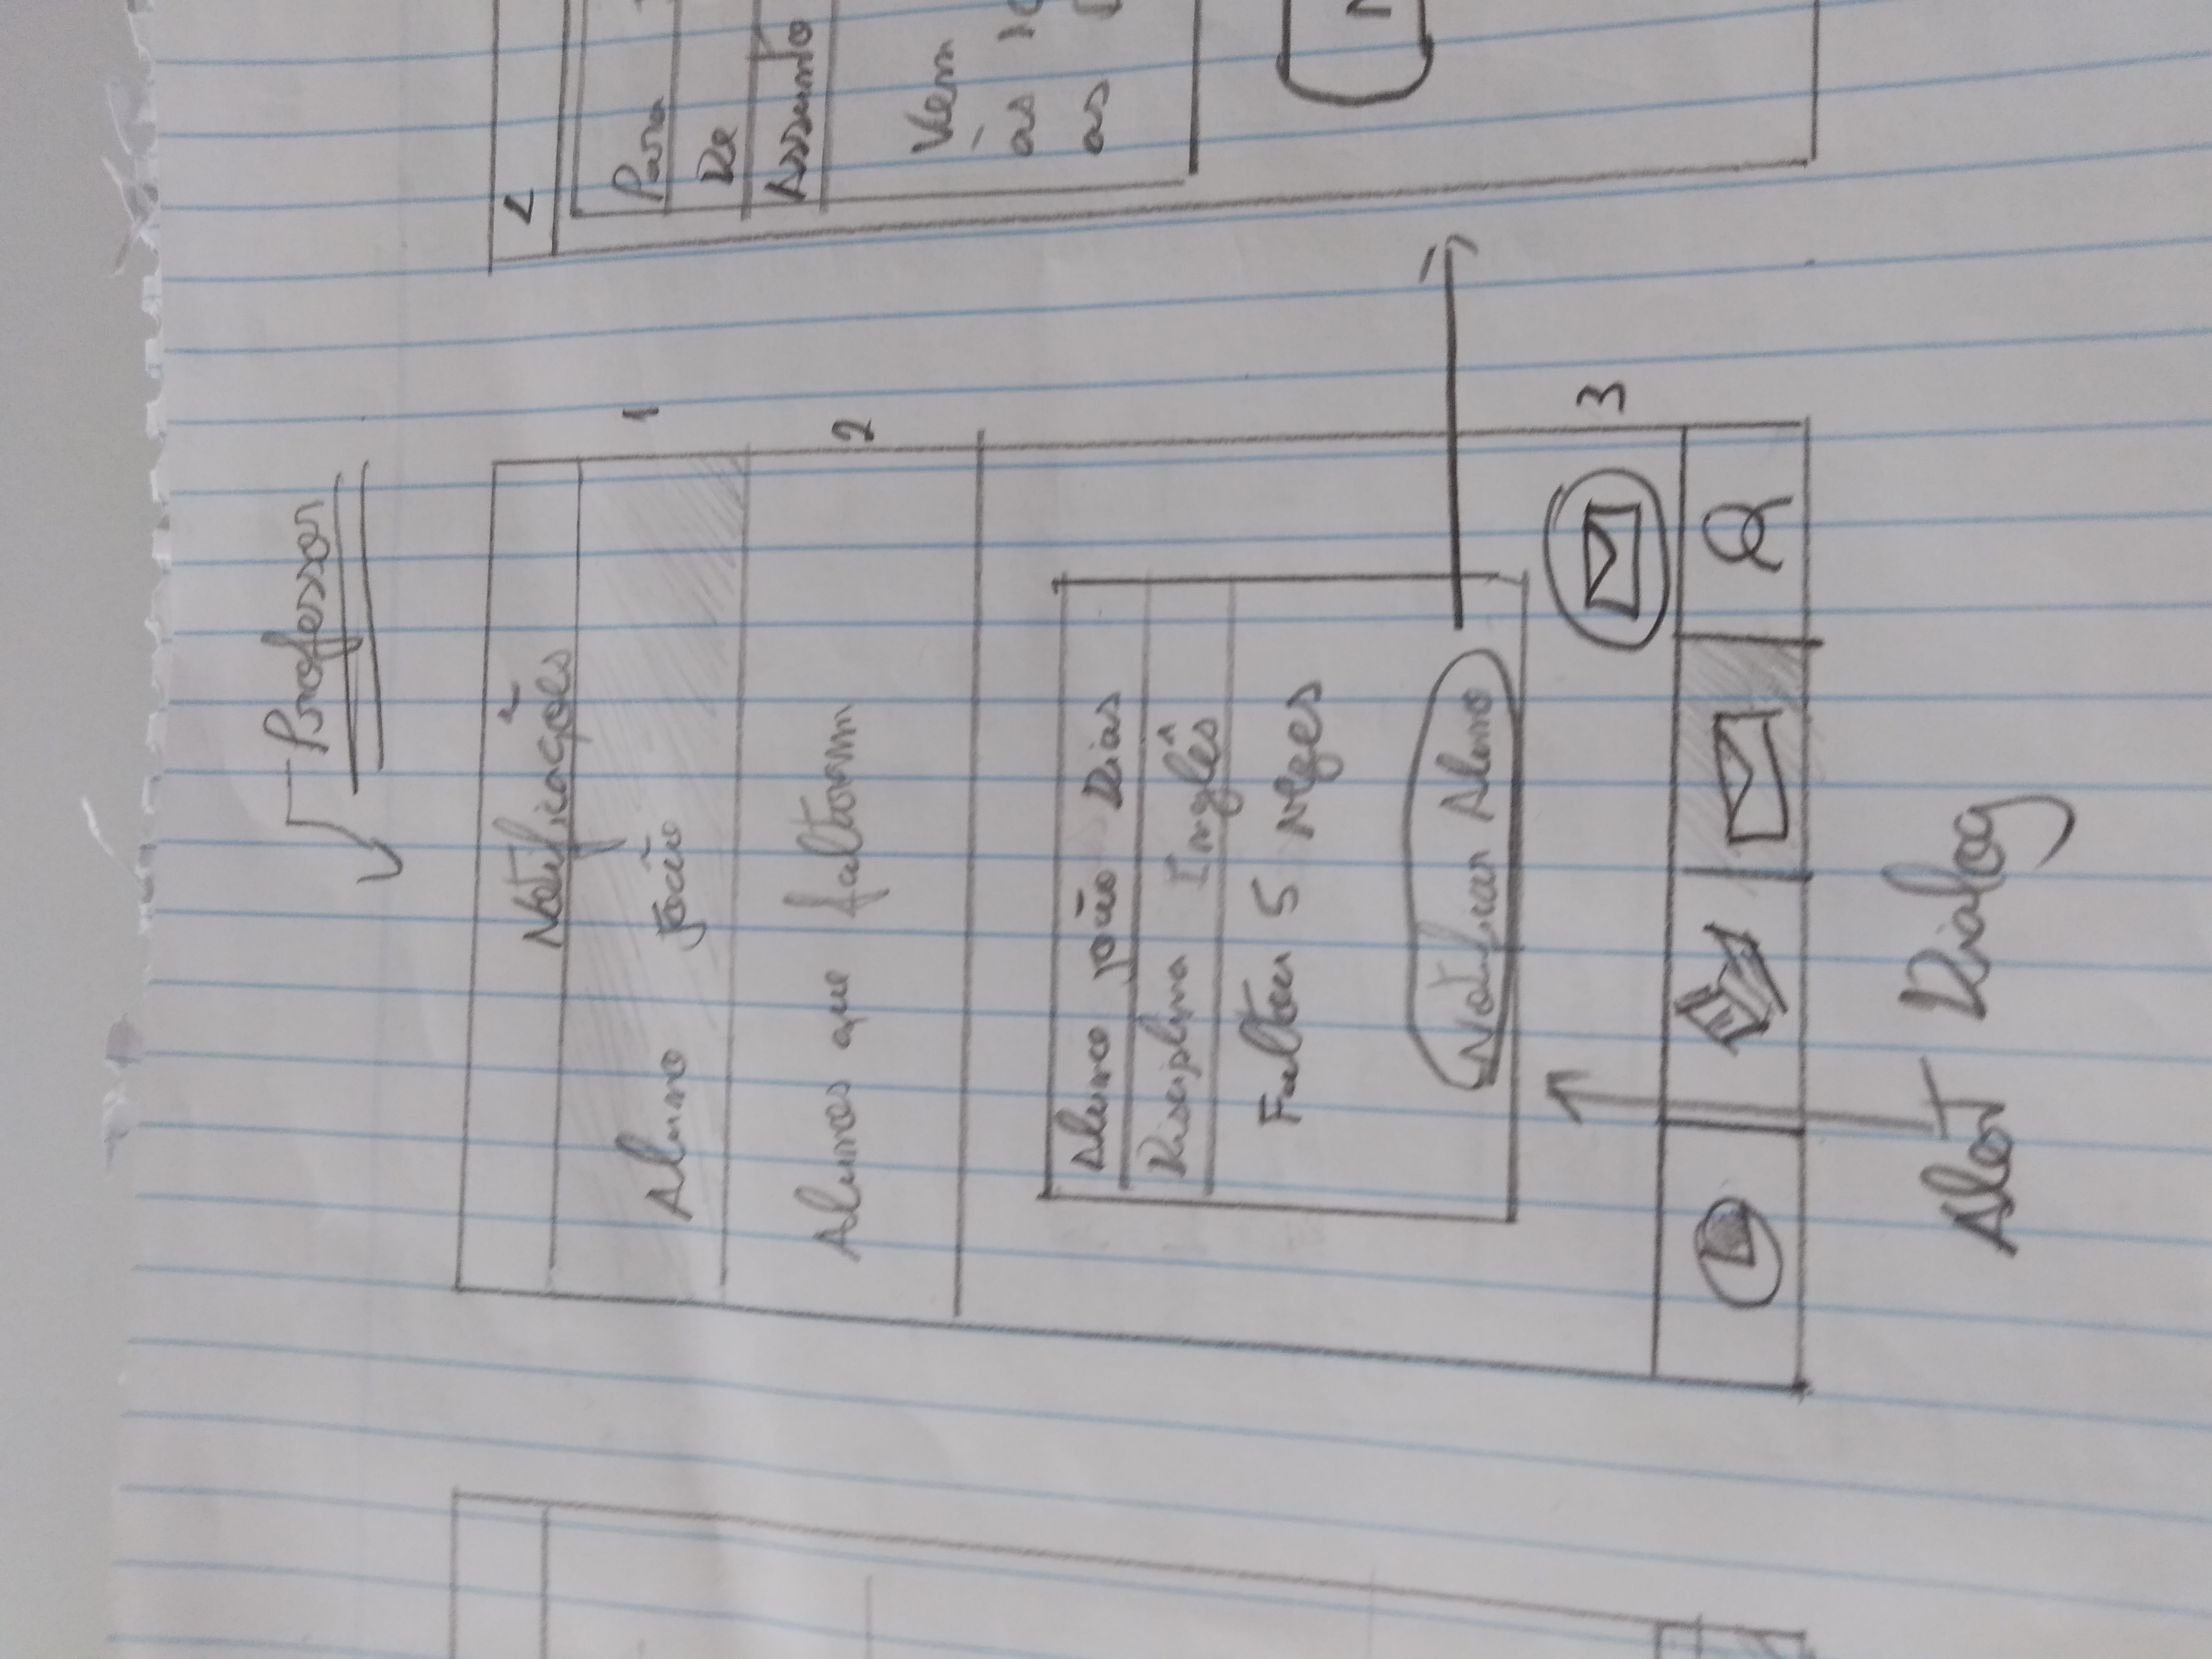 Professor
Notificações
Aluno João
1
Alunos que faltaram
2
Aluno João Dias
Disciplina Inglês
Faltou 5 vezes
Notificar Aluno
3
Alert Dialog
<
Para
De
Assunto
Vem
às
as